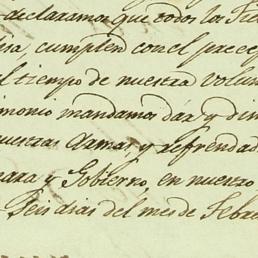 declaramos que todos los Fie
isa, cumplen con el precep
l tiempo de nuestra volun
imonio mandamos dár, y di
uestras Armas, y refrendad
mara y Gobierno, en nuestro
Seis dias del mes de Febre